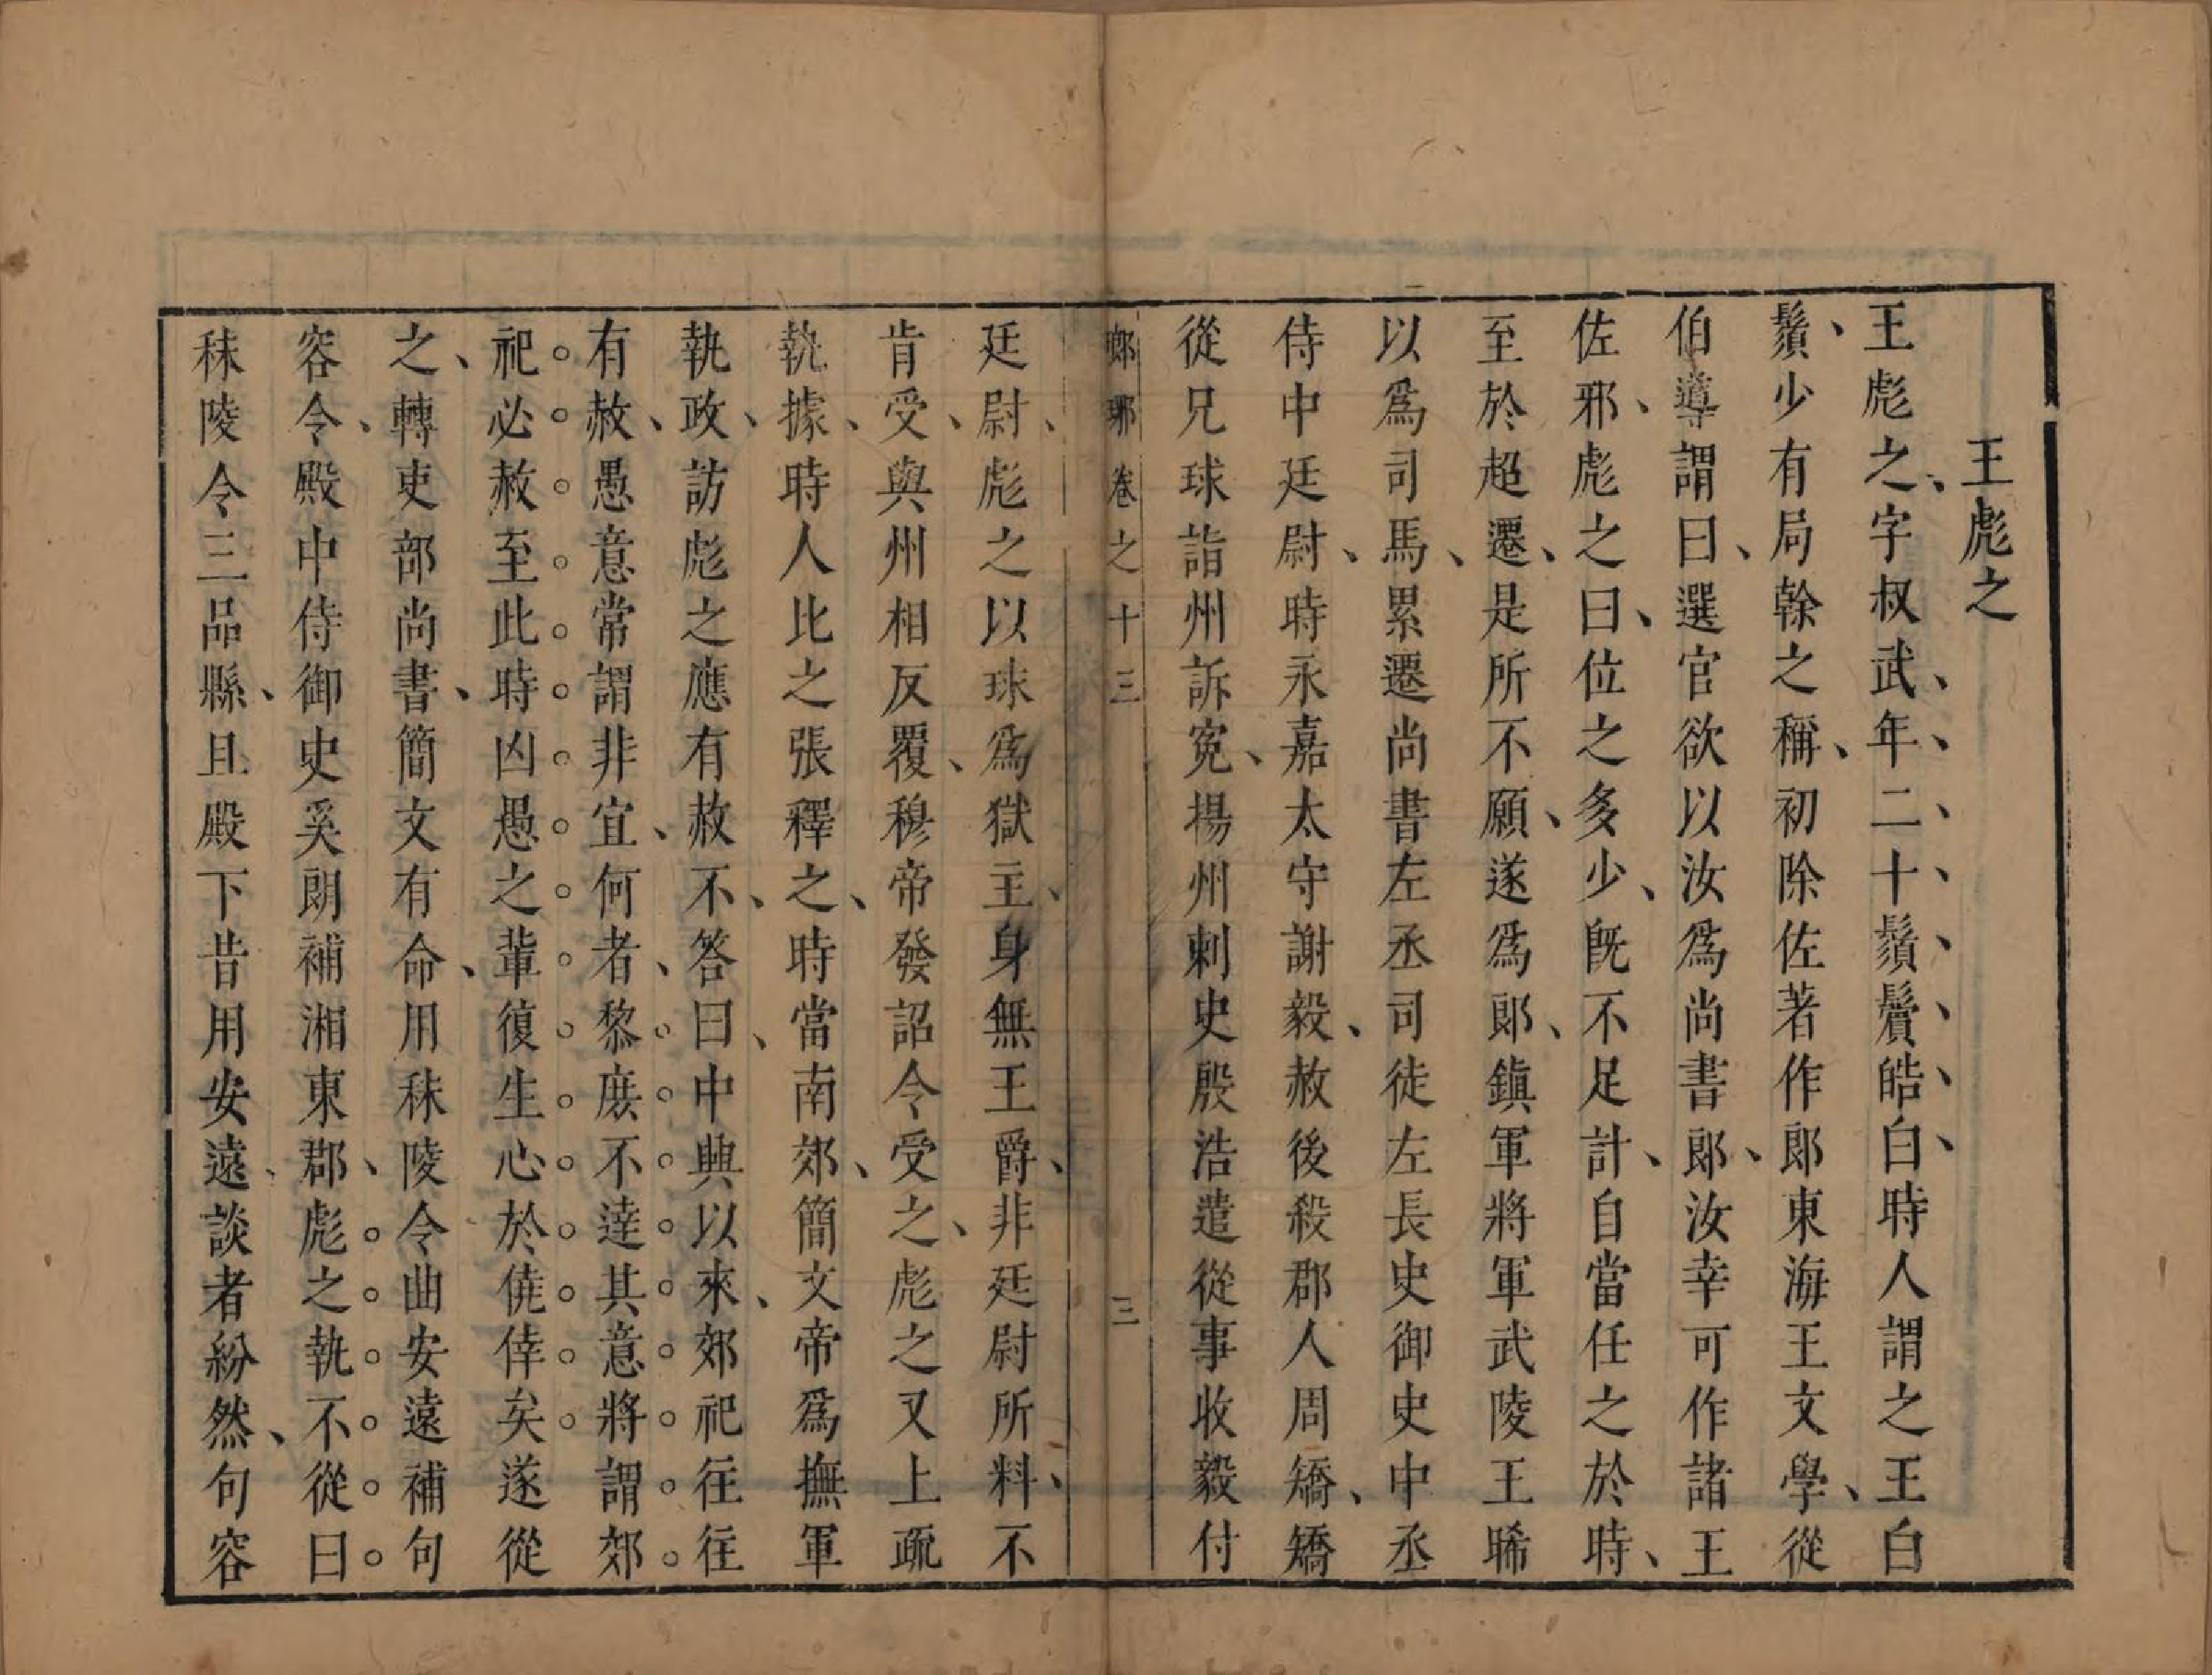 王彪之
王彪之、字叔武、年、二、十、鬚、鬢、皓、白、時人謂之王白
鬚、少有局幹之稱、初除佐著作郎東海王文學、從
伯導謂曰、選官欲以汝爲尚書郎、汝幸可作諸王
佐邪、彪之曰、位之多少、旣不足計、自當任之於時、
至於超遷、是所不願、遂爲郎、鎮軍將軍武陵王晞
以爲司馬、累遷尚書左丞司徒左長史御史中丞
侍中廷尉、時永嘉太守謝毅、赦後殺郡人周矯、矯
從兄球詣州訴寃、揚州刺史殷浩遣從事收毅付
郎琊 卷之十三 三
廷尉、彪之以球爲獄主、身無王爵、非廷尉所料、不
肯受、與州相反覆、穆帝發詔令受之、彪之又上疏
執據、時人比之張釋之、時當南郊、簡文帝爲撫軍
執政、訪彪之應有赦不、答曰、中興以來、郊祀往往
有赦、愚意常謂非宜、何者、黎。庶。不。達。其。意。將。謂。郊。
祀。必。赦。至。此。時。凶。愚。之。輩。復。生。心。於。僥。倖。矣。遂從
之、轉吏部尚書、簡文有命、用秣陵令曲安遠補句
容令、殿中侍御史奚朗補湘東郡、彪。之。執。不。從。曰。
秣陵令三品縣、且殿下昔用安遠、談者紛然、句容